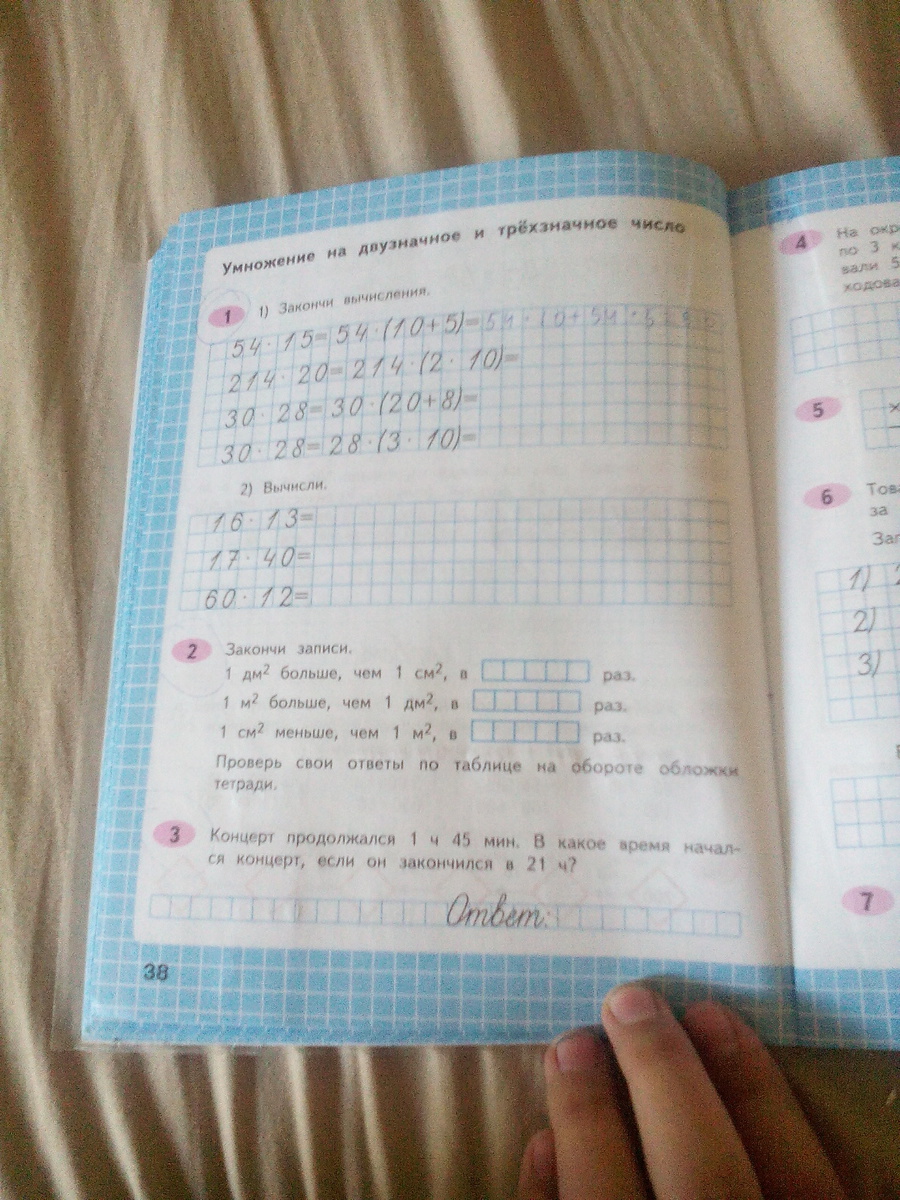 Умножение на двузначное и трёхзначное число
1 1) Закончи вычисления.
54 · 15 = 54 · (10 + 5) = 54 · 10 + 54 · 5 =
214 · 20 = 214 · (2 · 10) =
30 · 28 = 30 · (20 + 8) =
30 · 28 = 28 · (3 · 10) =
2) Вычисли.
16 · 13 =
17 · 40 =
60 · 12 =
2 Закончи записи.
1 дм² больше, чем 1 см², в раз.
1 м² больше, чем 1 дм², в раз.
1 см² меньше, чем 1 м², в раз.
Проверь свои ответы по таблице на обороте обложки
тетради.
3 Концерт продолжался 1 ч 45 мин. В какое время начал-
ся концерт, если он закончился в 21 ч?
Ответ:
38
4 На окр
по 3 к
вали 5
ходова
5
6 Това
за
Зап
1)
2)
3)
7